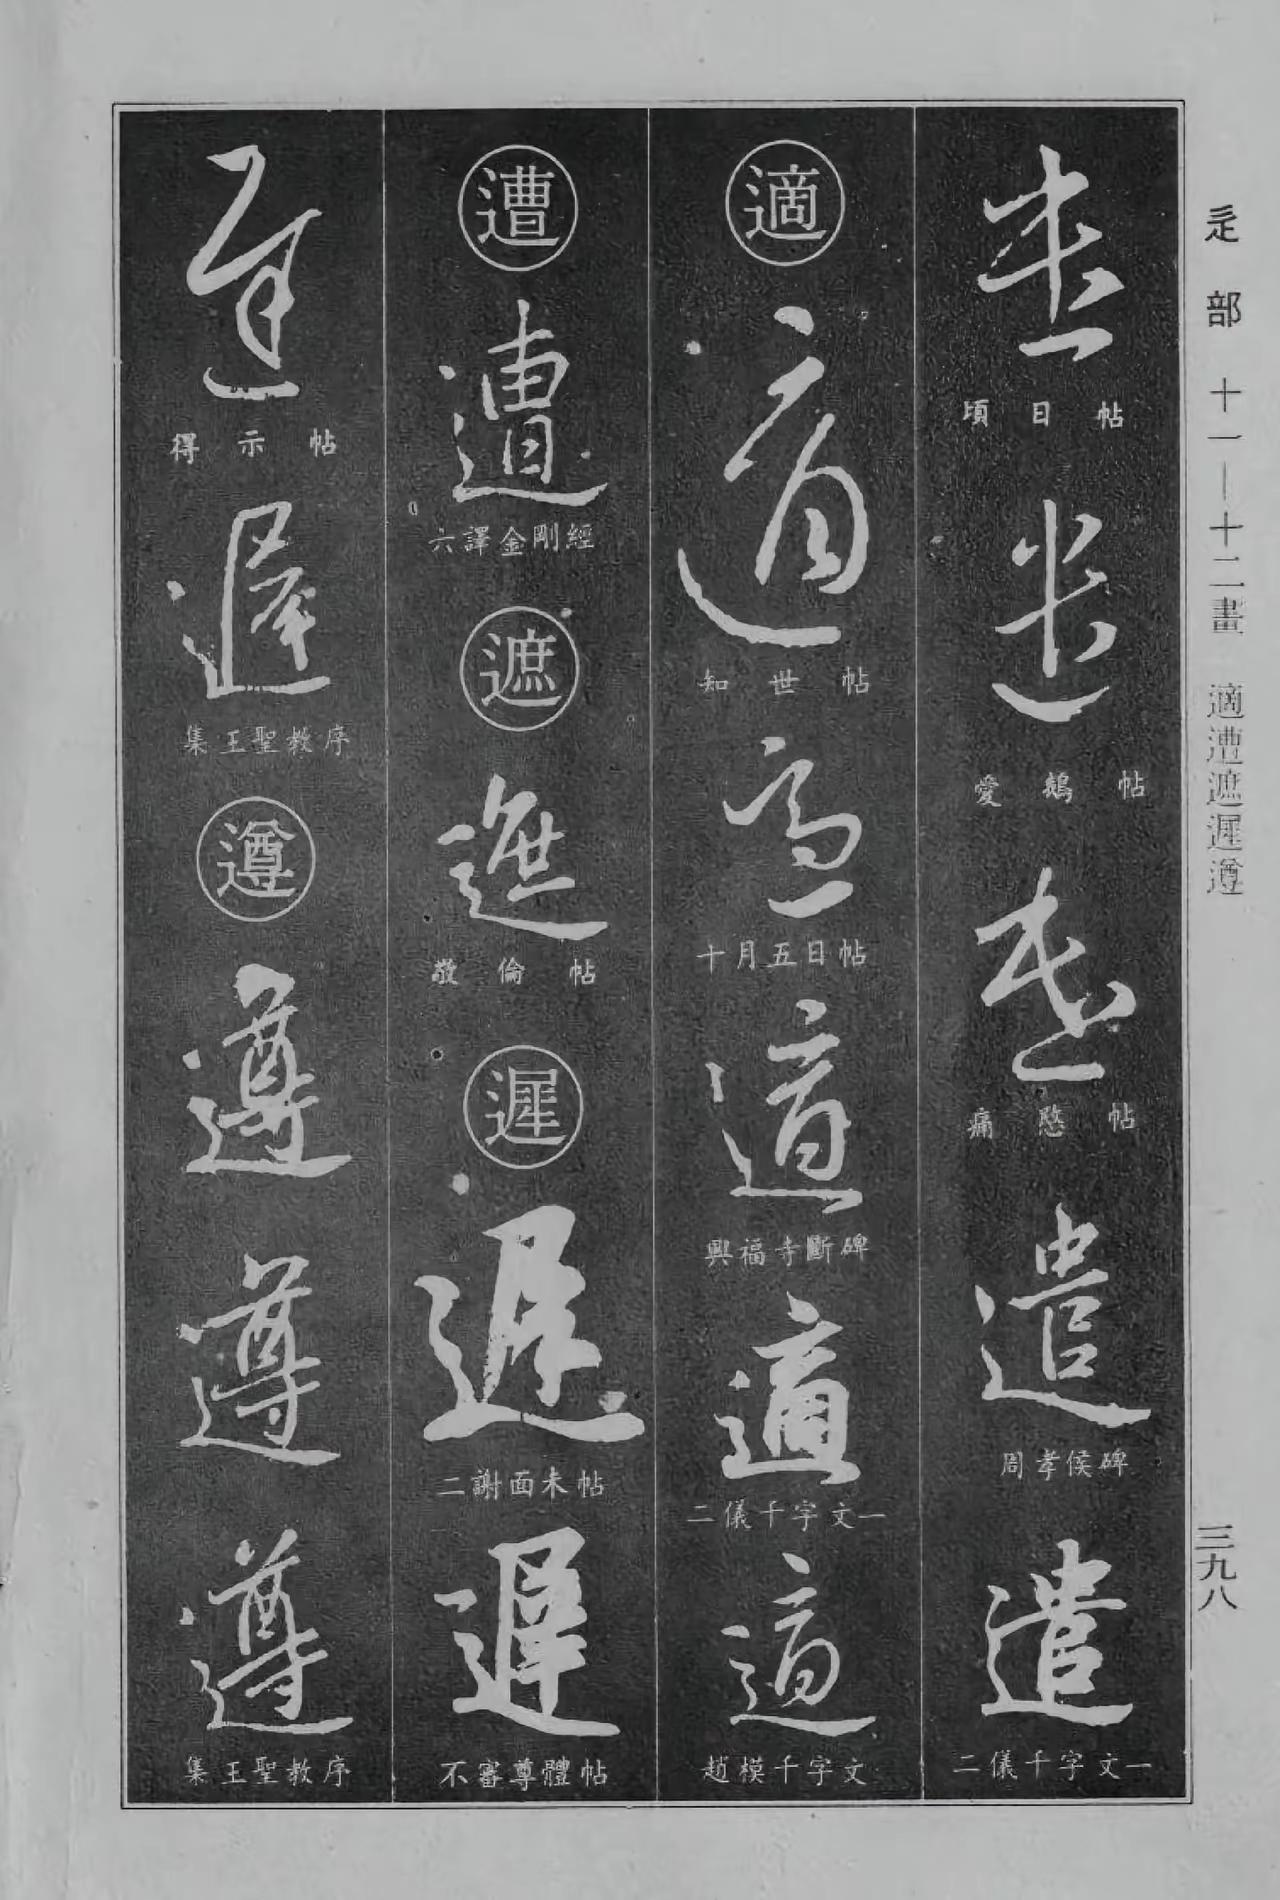 辵部 十一—十二畫 適遭遮遲遵
三九八
遣
頃日帖
遣
愛鵝帖
遣
痛愍帖
遣
周孝侯碑
遣
二儀千字文一
適
適
知世帖
適
十月五日帖
適
興福寺斷碑
適
二儀千字文一
適
趙模千字文
遭
遭
六譯金剛經
遮
遮
敬倫帖
遲
遲
二謝面未帖
遲
不審尊體帖
遲
得示帖
遲
集王聖教序
遵
遵
遵
遵
集王聖教序